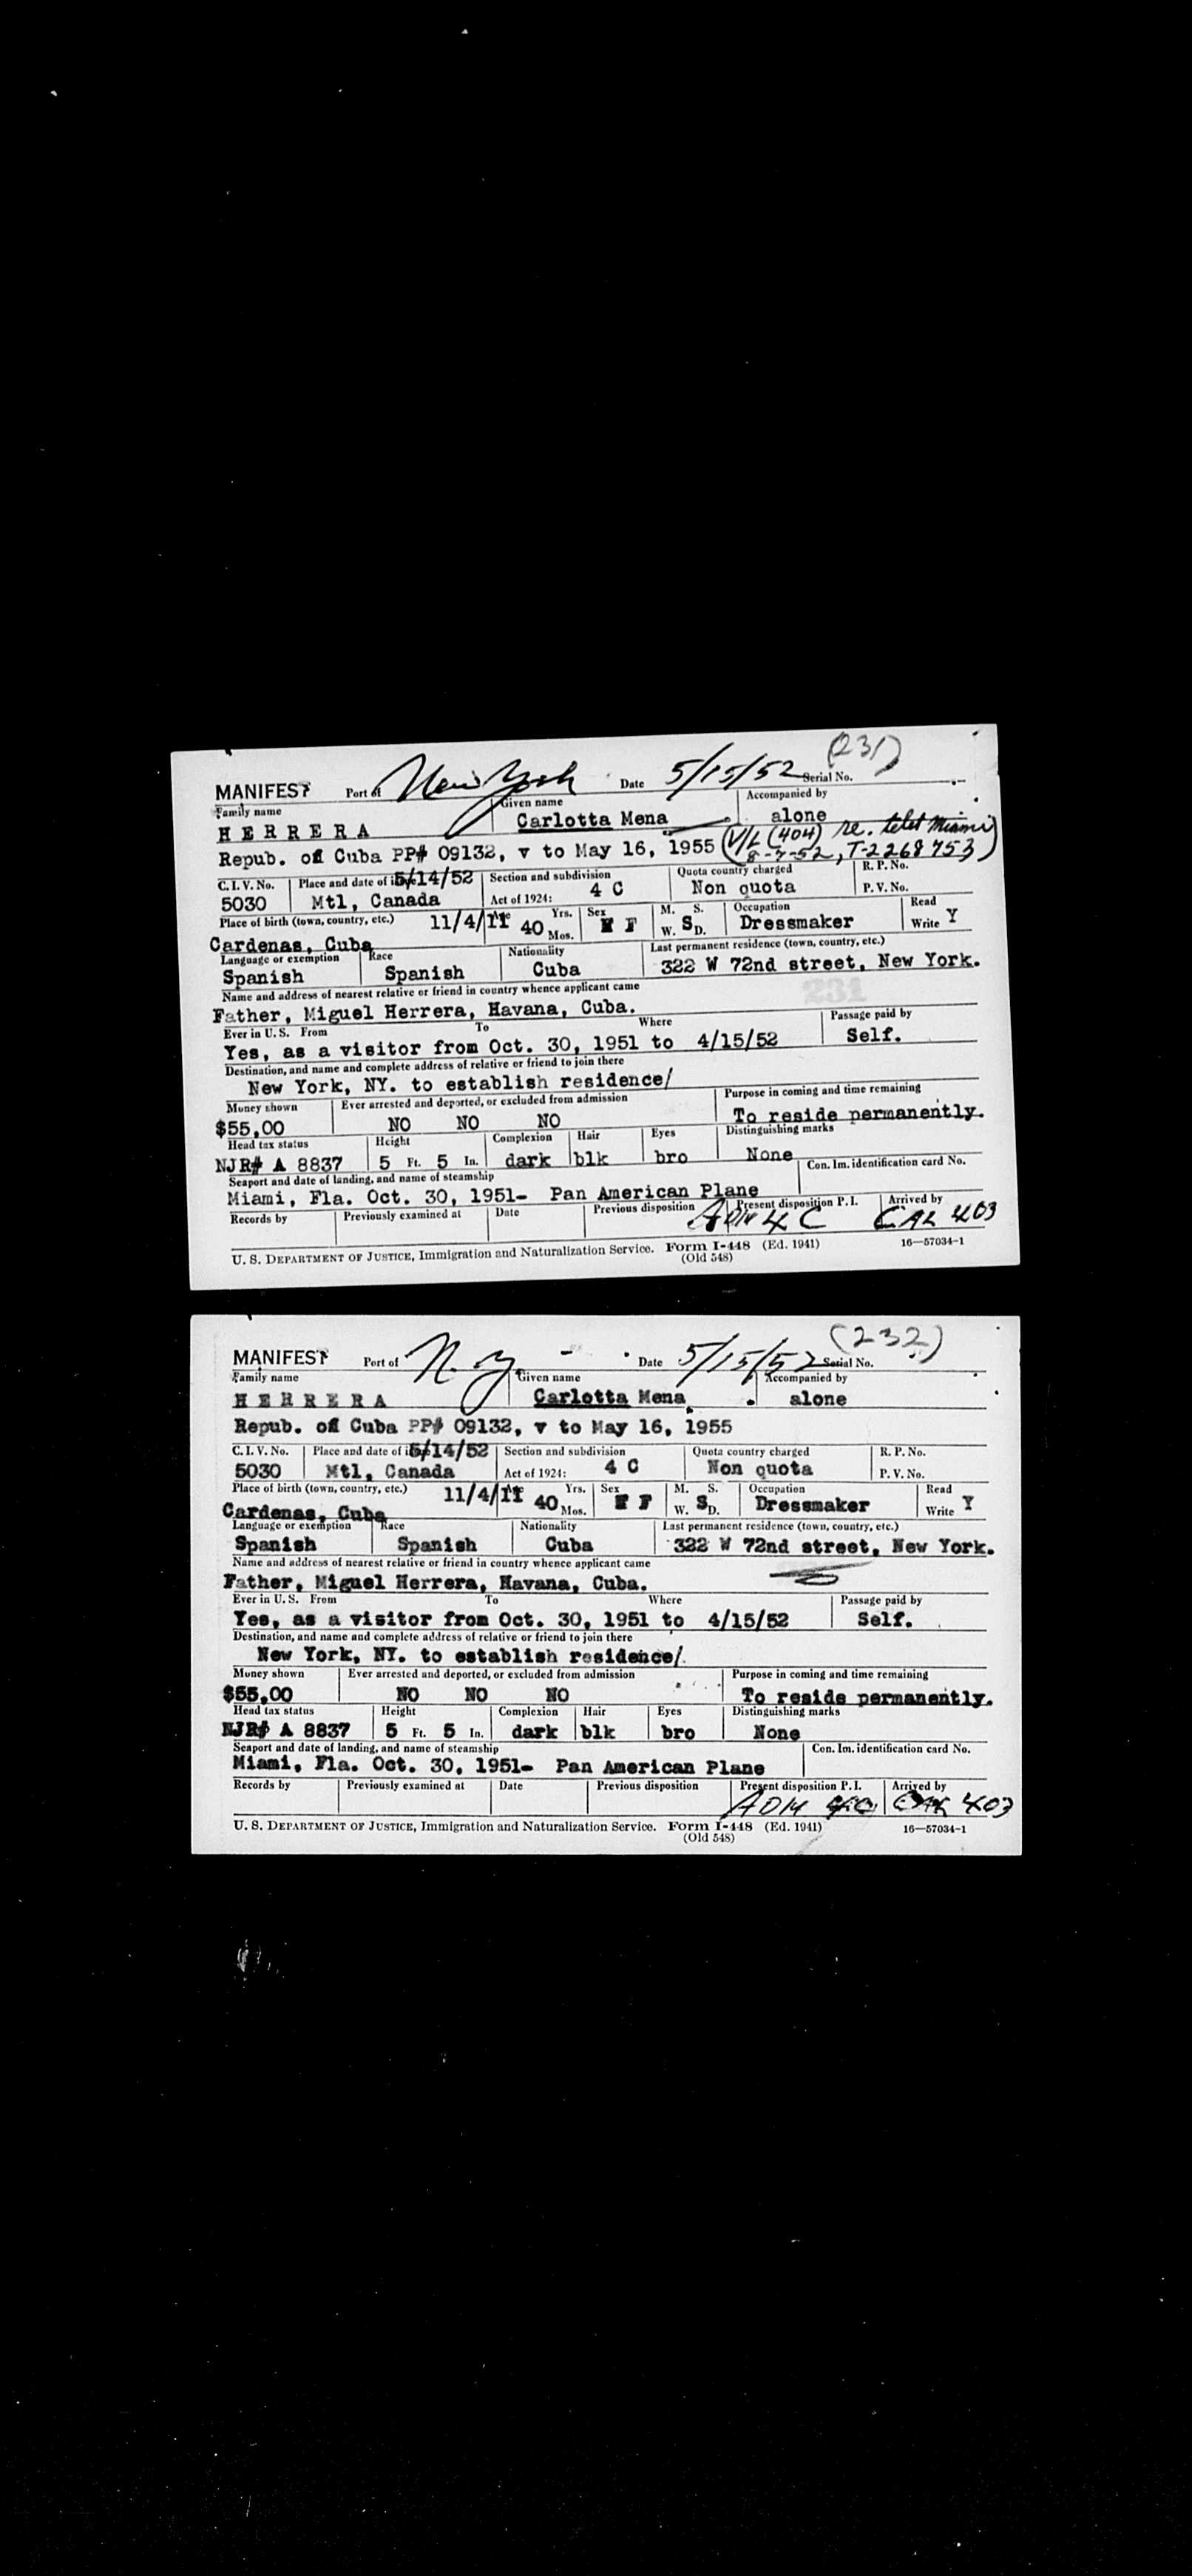 (231)
MANIFEST Port of New York Date 5/15/52 Serial No.
Family name Given name Accompanied by
HERRERA Carlotta Mena alone
Repub. of Cuba PP# 09132, v to May 16, 1955 (V/L (404) re. telet Miami
8-7-52, T-2268753)
C. I. V. No. Place and date of 5/14/52 Section and subdivision Quota country charged R. P. No.
5030 Mtl, Canada Act of 1924: 4 C Non quota P. V. No.
Place of birth (town, country, etc.) 11/4/11 40 Yrs. Mos. Sex F M. S. W. D. S Occupation Read
Cardenas, Cuba Dressmaker Write Y
Language or exemption Race Nationality Last permanent residence (town, country, etc.)
Spanish Spanish Cuba 322 W 72nd street, New York.
231
Name and address of nearest relative or friend in country whence applicant came
Father, Miguel Herrera, Havana, Cuba.
Ever in U. S. From To Where Passage paid by
Yes, as a visitor from Oct. 30, 1951 to 4/15/52 Self.
Destination, and name and complete address of relative or friend to join there
New York, NY. to establish residence/
Money shown Ever arrested and deported, or excluded from admission Purpose in coming and time remaining
$55,00 NO NO NO To reside permanently.
Head tax status Height Complexion Hair Eyes Distinguishing marks
NJR# A 8837 5 Ft. 5 In. dark blk bro None
Seaport and date of landing, and name of steamship Con. Im. identification card No.
Miami, Fla. Oct. 30, 1951- Pan American Plane
Records by Previously examined at Date Previous disposition Present disposition P. I. Arrived by
ADM 4 C CAL 403
U. S. DEPARTMENT OF JUSTICE, Immigration and Naturalization Service. Form I-448 (Ed. 1941) 16—57034-1
(Old 548)
(232)
MANIFEST Port of N. Y. Date 5/15/52 Serial No.
Family name Given name Accompanied by
HERRERA Carlotta Mena alone
Repub. of Cuba PP# 09132, v to May 16, 1955
C. I. V. No. Place and date of 5/14/52 Section and subdivision Quota country charged R. P. No.
5030 Mtl, Canada Act of 1924: 4 C Non quota P. V. No.
Place of birth (town, country, etc.) 11/4/11 40 Yrs. Mos. Sex F M. S. W. D. S Occupation Read
Cardenas, Cuba Dressmaker Write Y
Language or exemption Race Nationality Last permanent residence (town, country, etc.)
Spanish Spanish Cuba 322 W 72nd street, New York.
Name and address of nearest relative or friend in country whence applicant came
Father, Miguel Herrera, Havana, Cuba.
Ever in U. S. From To Where Passage paid by
Yes, as a visitor from Oct. 30, 1951 to 4/15/52 Self.
Destination, and name and complete address of relative or friend to join there
New York, NY. to establish residence/
Money shown Ever arrested and deported, or excluded from admission Purpose in coming and time remaining
$55,00 NO NO NO To reside permanently.
Head tax status Height Complexion Hair Eyes Distinguishing marks
NJR# A 8837 5 Ft. 5 In. dark blk bro None
Seaport and date of landing, and name of steamship Con. Im. identification card No.
Miami, Fla. Oct. 30, 1951- Pan American Plane
Records by Previously examined at Date Previous disposition Present disposition P. I. Arrived by
ADM 403
U. S. DEPARTMENT OF JUSTICE, Immigration and Naturalization Service. Form I-448 (Ed. 1941) 16—57034-1
(Old 548)